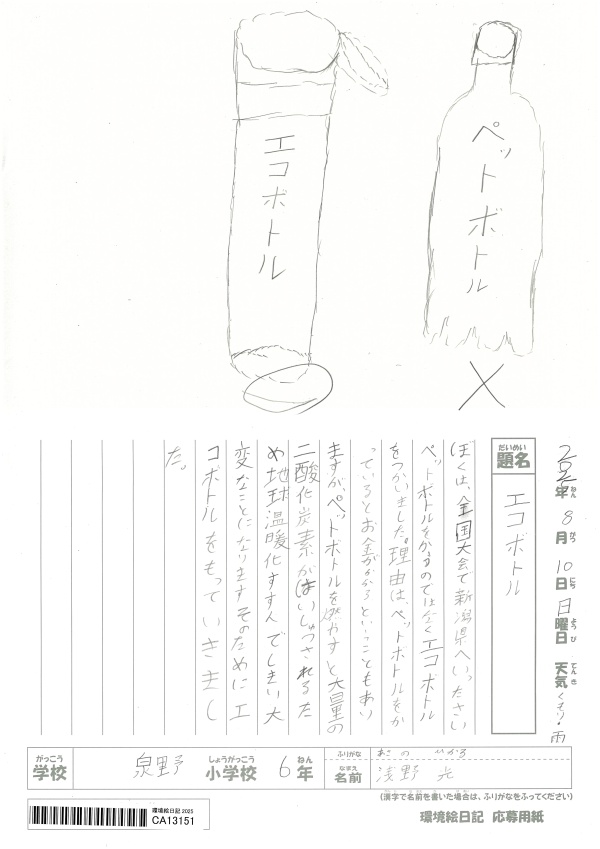 エコボトル
ペットボトル
だいめい
題名
エコボトル
年 8月10日 日曜日 天気 くもり・雨
ねん がつ にち ようび てんき
ぼくは、全国大会で新潟県へいったさい
ペットボトルをかうのではなくエコボトル
をつかいました。理由は、ペットボトルをか
っているとお金がかかるということもあり
ますが、ペットボトルを燃やすと大量の
二酸化炭素がはいしゅつされるた
め地球温暖化すすんでしまい大
変なことになりますそのためにエ
コボトルをもっていきまし
た。
がっこう しょうがっこう ねん
学校 泉野 小学校 6年
ふりがな あさの ひかる
なまえ
名前 浅野 光
(漢字で名前を書いた場合は、ふりがなをふってください)
環境絵日記 応募用紙
環境絵日記 2025
CA13151